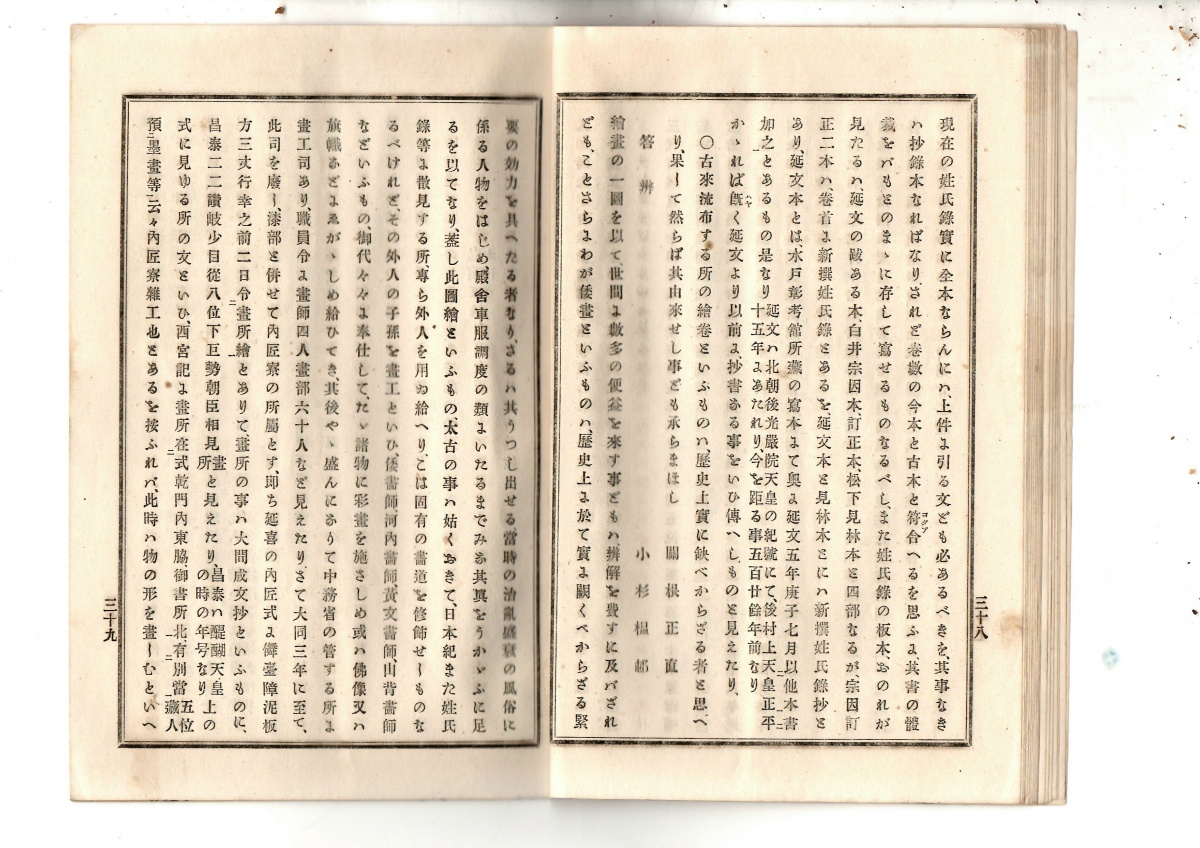 現在の姓氏錄實に全本ならんにハ、上件よ引る文ども必あるべきを其事なき
ハ抄錄本なればなり、されど卷數の今本と古本と符合へるを思ふよ其書の體
裁をバもとのまゝに存して寫せるものなるべし、また姓氏錄の板本、おのれが
見たるハ、延文の跋ある本、白井宗因本、訂正本、松下見林本と四部なるが、宗因訂
正二本ハ、卷首よ新撰姓氏錄とあるを、延文本と見林本とにハ新撰姓氏錄抄と
あり、延文本とは、水戸彰考館所藏の寫本よて奥よ延文五年庚子七月以他本書
加之とあるもの是なり延文ハ北朝後光嚴院天皇の紀號にて、後村上天皇正平十五年よあたれり今を距る事五百廿餘年前なり
かゝれば既く延文より以前よ、抄書ある事をいひ傳へしものと見えたり、
〇古來流布する所の繪卷といふものハ、歷史上實に缺べからざる者と思へ
り、果して然らば其由來せし事ども承らまほし　關根正直
答辨　小杉榲邨
繪畫の一圖を以て、世間よ數多の便益を來す事どもハ辨解を費すに及バざれ
ども、ことさらよわが倭畫といふものハ、歷史上よ於て實よ闕くべからざる緊
三十八
要の効力を具へたる者なり、さるハ其うつし出せる當時の治亂盛衰の風俗に
係る人物をはじめ殿舍車服調度の類よいたるまでみな其眞をうかゞふに足
るを以てなり、蓋し此圖繪といふもの、太古の事ハ姑くおきて、日本紀また姓氏
錄等よ散見する所、專ら外人を用ゐ給へり、こは固有の畵道を修飾せしものな
るべけれど、その外人の子孫を畫工といひ、倭畵師、河內畵師、黃文畵師、山背畵師
などいふもの、御代々々よ奉仕して、たゞ諸物に彩畫を施さしめ或ハ佛像又ハ
旗幟などよゑがゝしめ給ひてき、其後やゝ盛んになりて中務省の管する所よ
畫工司あり、職員令よ畫師四人畫部六十人など見えたり、さて大同三年に至て、
此司を廢し漆部と併せて內匠寮の所屬とす、即ち延喜の內匠式よ屛臺障泥板
方三丈行幸之前二日令畫所繪とありて畫所の事ハ大間成文抄といふものに、
昌泰二二讚岐少目從八位下巨勢朝臣相見畫所と見えたり、昌泰ハ醍醐天皇上の時の年号なり
式に見ゆる所の文といひ西宮記よ畫所在式乾門內東脇、御書所北、有別當五位藏人
預ニ墨畫等云々內匠寮雜工也とあるを按ふれバ、此時ハ物の形を畫しむといへ
三十九